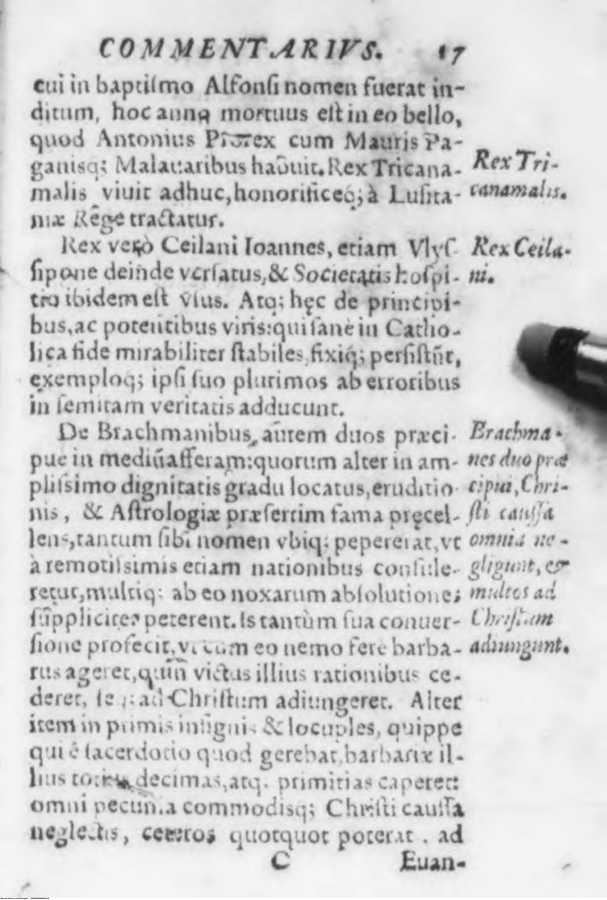 COMMENTARIVS. 17
cui in baptiſmo Alfonſi nomen fuerat in-
ditum, hoc anno mortuus eſt in eo bello,
quod Antonius Prorex cum Mauris Pa-
ganisq; Malauaribus habuit. Rex Tricana-
malis viuit adhuc, honorificeq; à Luſita-
niæ Rege tractatur.
Rex Tri-
canamalis.
Rex verò Ceilani Ioannes, etiam Vlyſ-
ſipone deinde verſatus, & Societatis hoſpi-
tio ibidem eſt vſus. Atq; hęc de principi-
bus, ac potentibus viris: qui ſane in Catho-
lica fide mirabiliter ſtabiles, fixiq; perſiſtũt,
exemploq; ipſi ſuo plurimos ab erroribus
in ſemitam veritatis adducunt.
Rex Ceila-
ni.
De Brachmanibus, autem duos præci-
pue in mediũ afferam: quorum alter in am-
pliſſimo dignitatis gradu locatus, eruditio-
nis, & Aſtrologiæ præſertim fama pręcel-
lens, tantum ſibi nomen vbiq; pepererat, vt
à remotiſsimis etiam nationibus conſule-
retur, multiq; ab eo noxarum abſolutiones
ſuppliciter peterent. Is tantùm ſua conuer-
ſione profecit, vt cum eo nemo fere barba-
rus ageret, quin victus illius rationibus ce-
deret, ſe ad Chriſtum adiungeret. Alter
item in primis inſignis & locuples, quippe
qui è ſacerdotio quod gerebat, barbariæ il-
lius totius decimas, atq. primitias caperet:
omni pecunia commodisq; Chriſti cauſſa
neglectis, ceteros quotquot poterat, ad
Brachma-
nes duo præ
cipui, Chri-
ſti cauſſa
omnia ne-
gligunt, &
multos ad
Chriſtum
adiungunt.
C Euan-